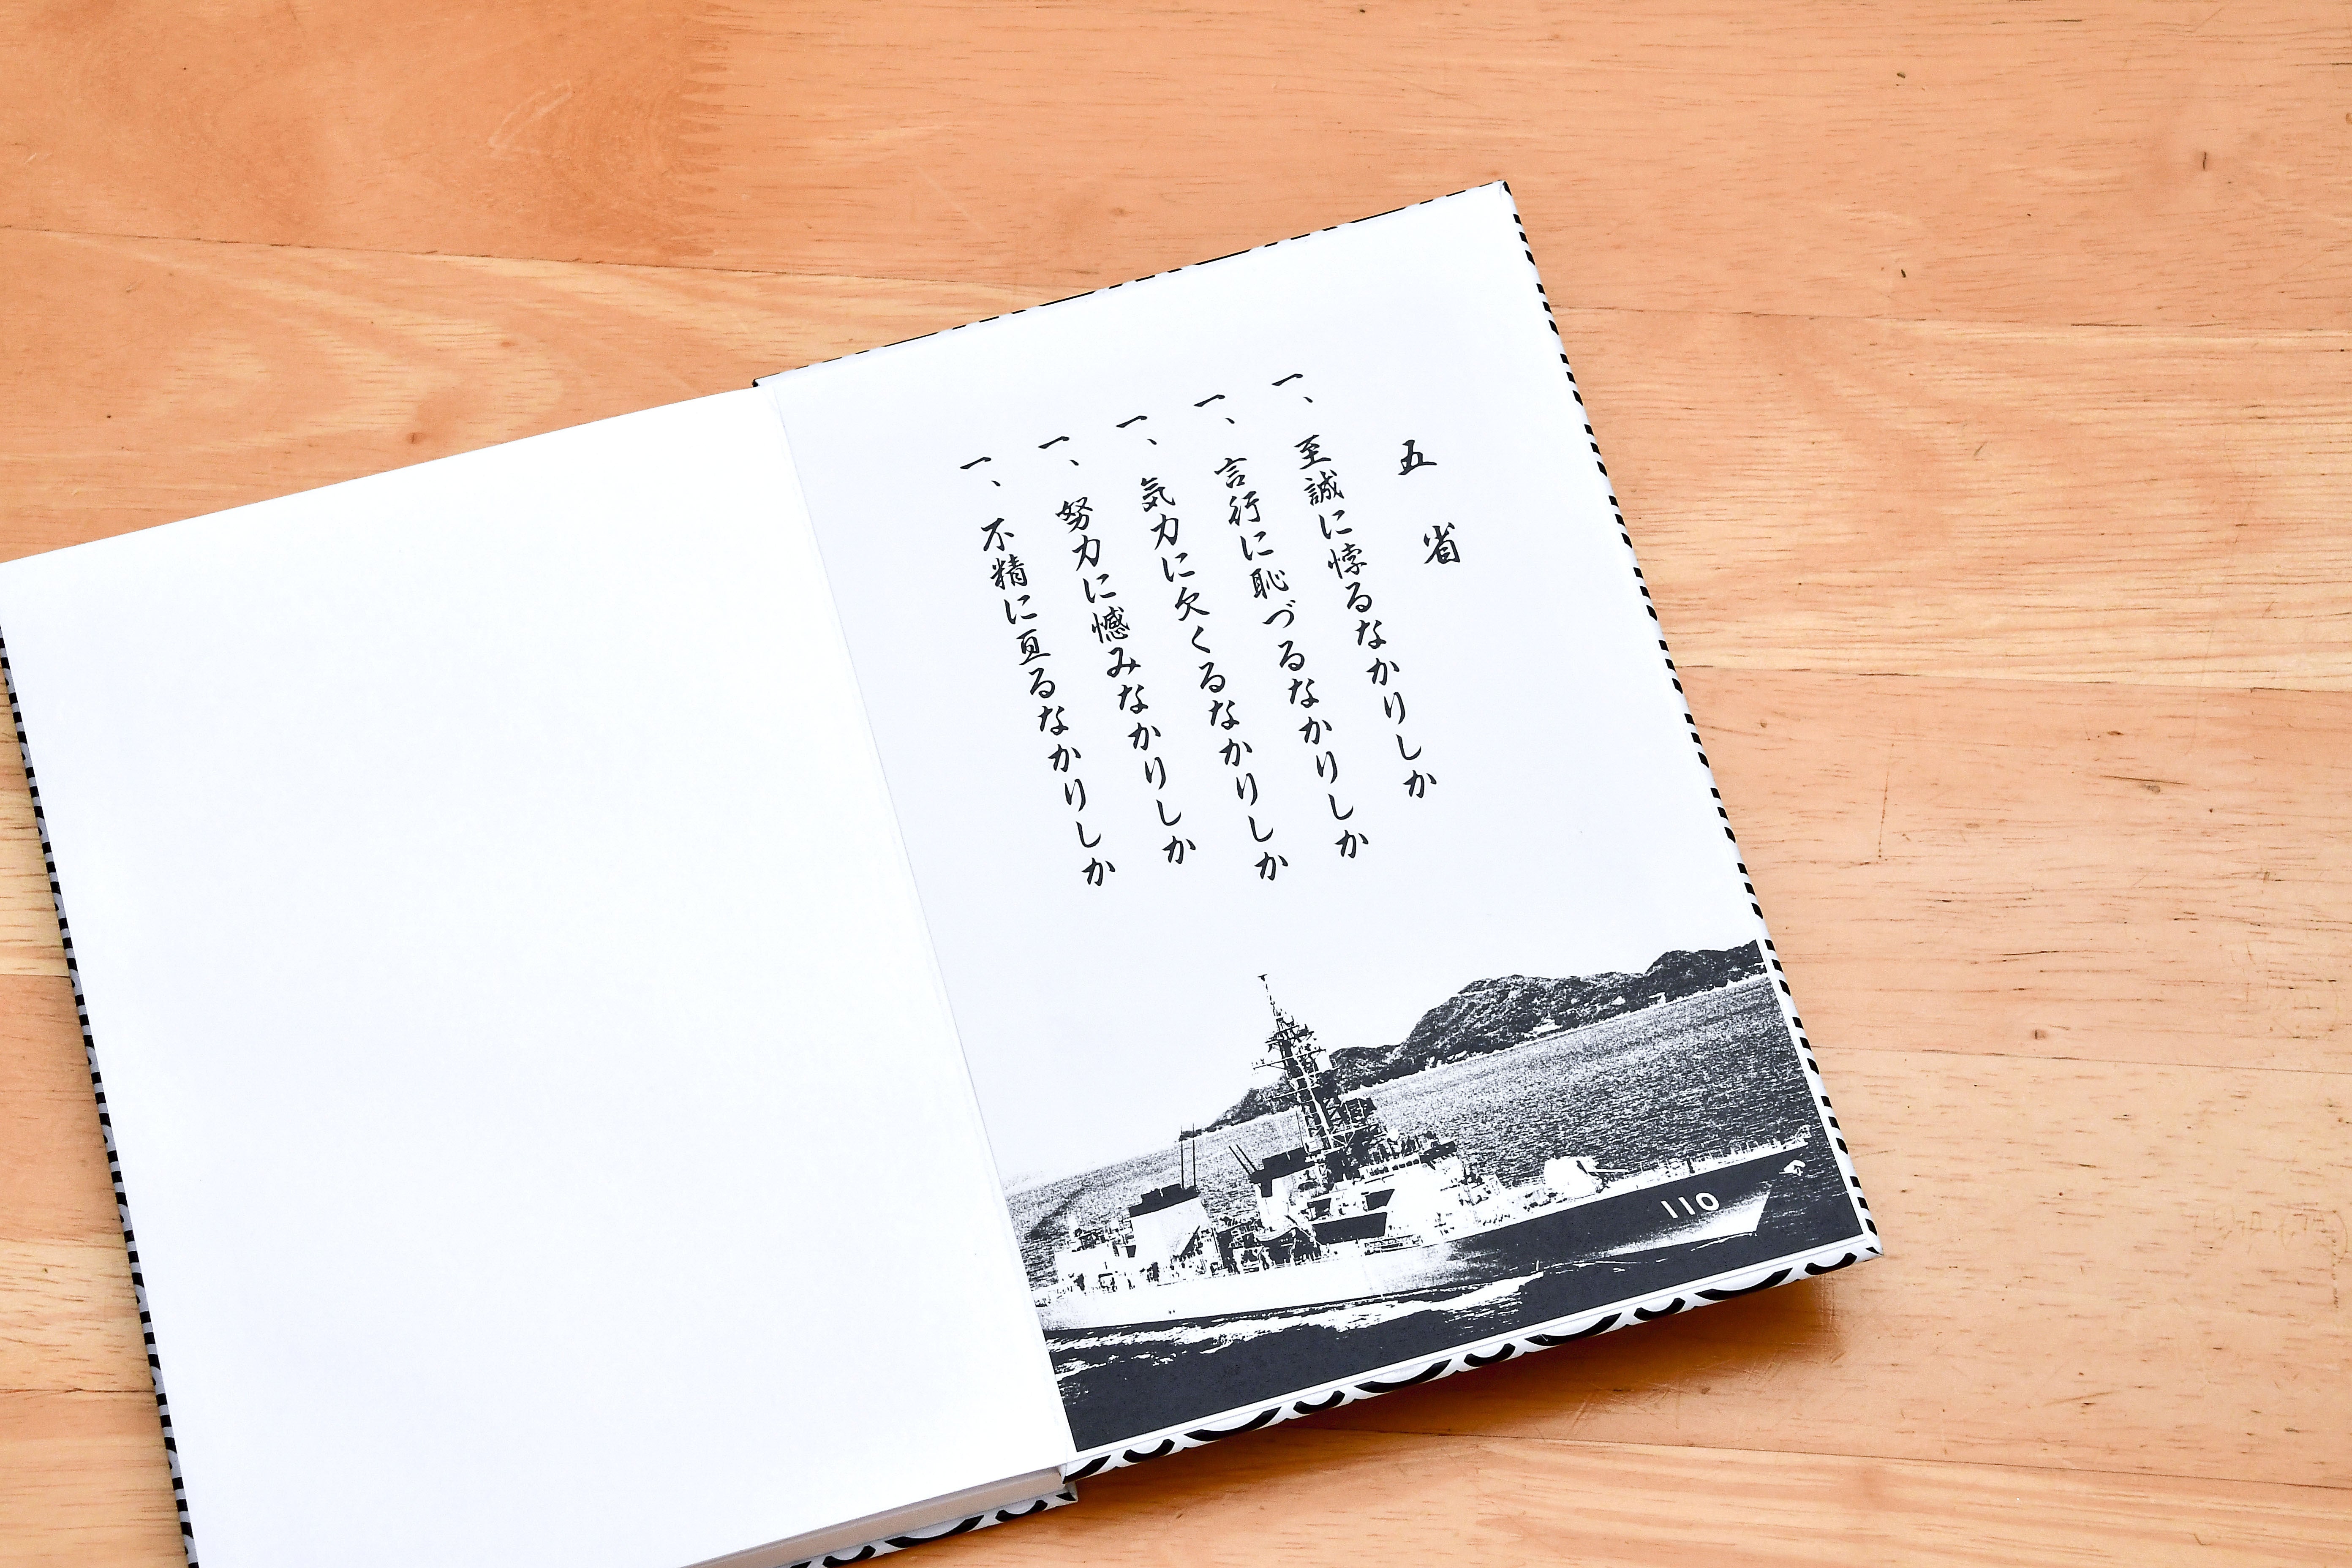 五省
一、至誠に悖るなかりしか
一、言行に恥づるなかりしか
一、気力に欠くるなかりしか
一、努力に憾みなかりしか
一、不精に亘るなかりしか
110